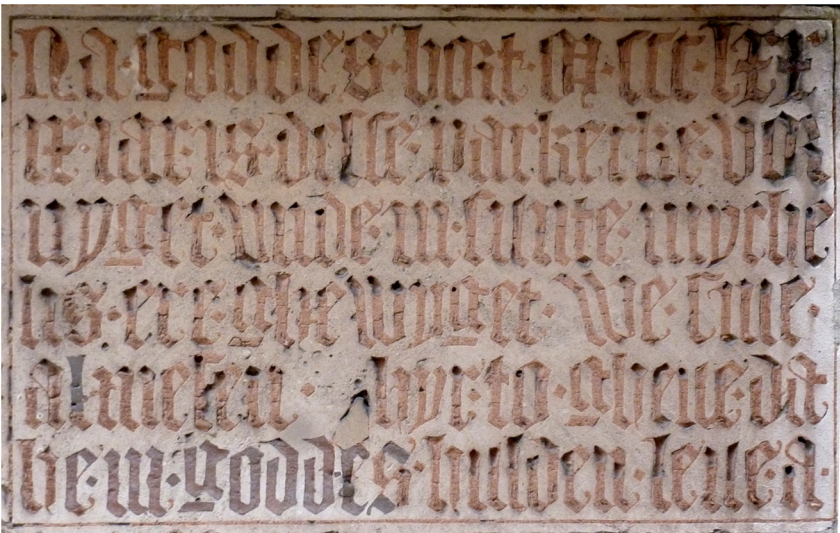 Na · goddes · bort · M · ccc · lxx
ix · iar · is · desse · parkerke · vor
nyget · vnde · in · sunte · myche
lis · ere · ghewyget · We · sine ·
almesen · hyr · to · gheve · dat
he · in · goddes · hulden · leve · a ·